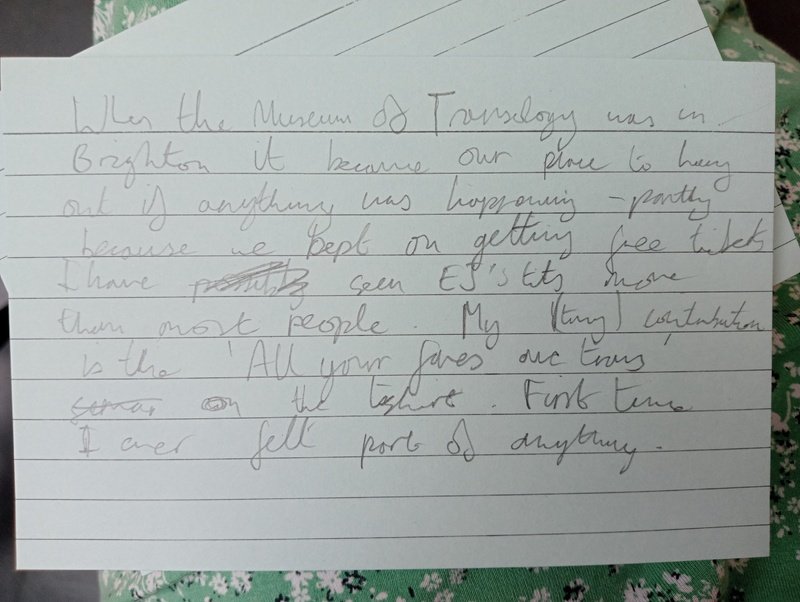 When the Museum of Transology was in
Brighton it became our place to hang
out if anything was happening - partly
because we kept on getting free tickets
I have possibly seen EJ's tits more
than most people. My (tiny) contribution
is the 'All your faves are trans'
on the tshirt. First time
I ever felt part of anything.